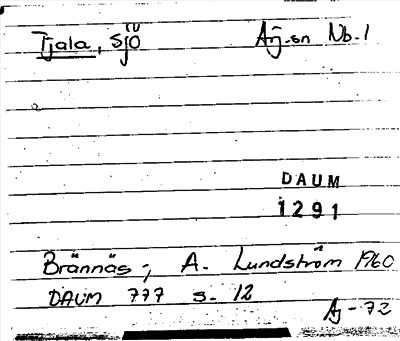 Tjala, sjö Arj-sn Nb.1
DAUM
1291
Brännäs-; A. Lundström 1960
DAUM 777 s. 12
Aj-72